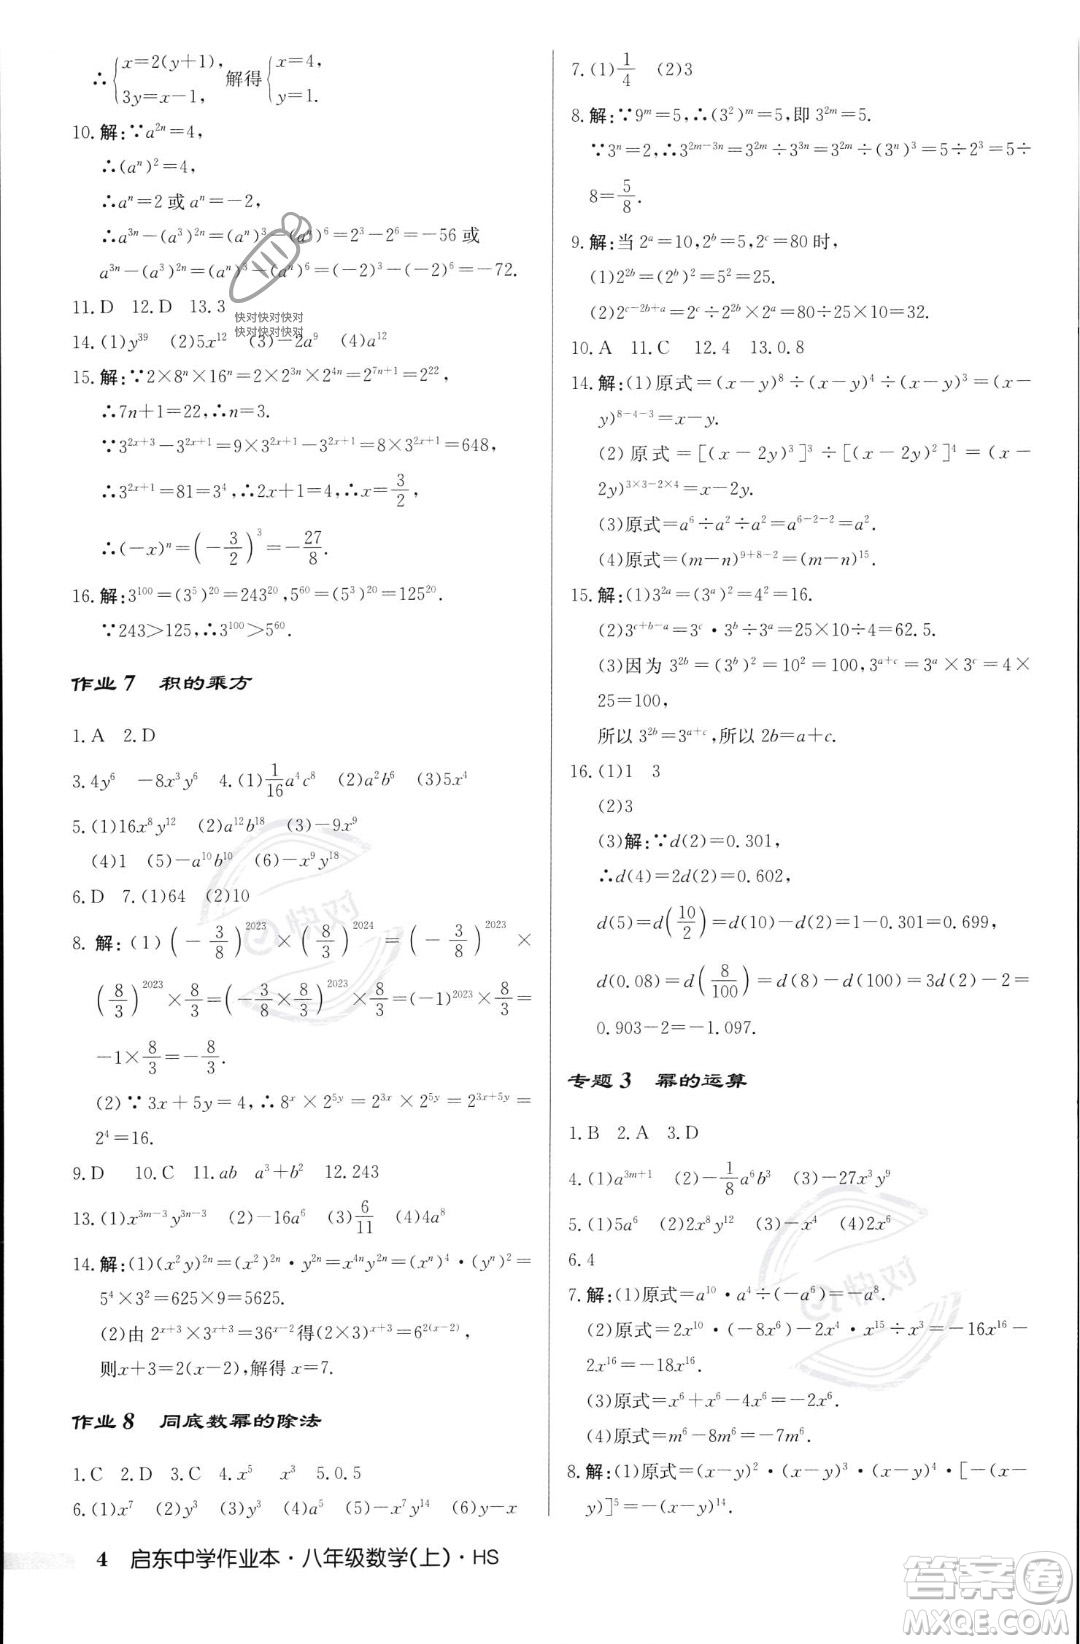 ∴{x=2(y+1), 3y=x-1, 解得{x=4, y=1.
10.解:∵a²ⁿ=4,
∴(aⁿ)²=4,
∴aⁿ=2 或 aⁿ=-2,
∴a³ⁿ-(a³)²ⁿ=(aⁿ)³-(aⁿ)⁶=2³-2⁶=-56 或
a³ⁿ-(a³)²ⁿ=(aⁿ)³-(aⁿ)⁶=(-2)³-(-2)⁶=-72.
11.D 12.D 13.3
快对快对快对
快对快对快对
14.(1)y³⁹ (2)5x¹² (3)-2a⁹ (4)a¹²
15.解:∵2×8ⁿ×16ⁿ=2×2³ⁿ×2⁴ⁿ=2⁷ⁿ⁺¹=2²²,
∴7n+1=22,∴n=3.
∵3^(2x+3)-3^(2x+1)=9×3^(2x+1)-3^(2x+1)=8×3^(2x+1)=648,
∴3^(2x+1)=81=3⁴,∴2x+1=4,∴x=3/2,
∴(-x)ⁿ=(-3/2)³=-27/8.
16.解:3¹⁰⁰=(3⁵)²⁰=243²⁰,5⁶⁰=(5³)²⁰=125²⁰.
∵243>125,∴3¹⁰⁰>5⁶⁰.
作业7 积的乘方
1.A 2.D
3.4y⁶ -8x³y⁶ 4.(1)1/16a⁴c⁸ (2)a²b⁶ (3)5x⁴
5.(1)16x⁸y¹² (2)a¹²b¹⁸ (3)-9x⁹
(4)1 (5)-a¹⁰b¹⁰ (6)-x⁹y¹⁸
6.D 7.(1)64 (2)10
8.解:(1)(-3/8)²⁰²³×(8/3)²⁰²⁴=(-3/8)²⁰²³×
(8/3)²⁰²³×8/3=(-3/8×8/3)²⁰²³×8/3=(-1)²⁰²³×8/3=
-1×8/3=-8/3.
(2)∵3x+5y=4,∴8ˣ×2⁵ʸ=2³ˣ×2⁵ʸ=2³ˣ⁺⁵ʸ=
2⁴=16.
9.D 10.C 11.ab a³+b² 12.243
13.(1)x^(3m-3)y^(3n-3) (2)-16a⁶ (3)6/11 (4)4a⁸
14.解:(1)(x²y)²ⁿ=(x²)²ⁿ·y²ⁿ=x⁴ⁿy²ⁿ=(xⁿ)⁴·(yⁿ)²=
5⁴×3²=625×9=5625.
(2)由 2ˣ⁺³×3ˣ⁺³=36ˣ⁻² 得(2×3)ˣ⁺³=6^(2(x-2)),
则x+3=2(x-2),解得 x=7.
作业8 同底数幂的除法
1.C 2.D 3.C 4.x⁵ x³ 5.0.5
6.(1)x⁷ (2)y³ (3)x² (4)a⁵ (5)-x⁷y⁷ (6)y-x
4 启东中学作业本·八年级数学(上)·HS
7.(1)1/4 (2)3
8.解:∵9ᵐ=5,∴(3²)ᵐ=5,即 3²ᵐ=5.
∵3ⁿ=2,∴3²ᵐ⁻³ⁿ=3²ᵐ÷3³ⁿ=3²ᵐ÷(3ⁿ)³=5÷2³=5÷
8=5/8.
9.解:当 2ᵃ=10,2ᵇ=5,2ᶜ=80 时,
(1)2²ᵇ=(2ᵇ)²=5²=25.
(2)2ᶜ⁻²ᵇ⁺ᵃ=2ᶜ÷2²ᵇ×2ᵃ=80÷25×10=32.
10.A 11.C 12.4 13.0.8
14.解:(1)原式=(x-y)⁸÷(x-y)⁴÷(x-y)³=(x-
y)⁸⁻⁴⁻³=x-y.
(2)原式=[(x-2y)³]³÷[(x-2y)²]⁴=(x-
2y)^(3×3-2×4)=x-2y.
(3)原式=a⁶÷a²÷a²=a⁶⁻²⁻²=a².
(4)原式=(m-n)⁹⁺⁸⁻²=(m-n)¹⁵.
15.解:(1)3²ᵃ=(3ᵃ)²=4²=16.
(2)3ᶜ⁺ᵇ⁻ᵃ=3ᶜ·3ᵇ÷3ᵃ=25×10÷4=62.5.
(3)因为 3²ᵇ=(3ᵇ)²=10²=100,3ᵃ⁺ᶜ=3ᵃ×3ᶜ=4×
25=100,
所以 3²ᵇ=3ᵃ⁺ᶜ,所以 2b=a+c.
16.(1)1 3
(2)3
(3)解:∵d(2)=0.301,
∴d(4)=2d(2)=0.602,
d(5)=d(10/2)=d(10)-d(2)=1-0.301=0.699,
d(0.08)=d(8/100)=d(8)-d(100)=3d(2)-2=
0.903-2=-1.097.
专题3 幂的运算
1.B 2.A 3.D
4.(1)a³ᵐ⁺¹ (2)-1/8a⁶b³ (3)-27x³y⁹
5.(1)5a⁶ (2)2x⁸y¹² (3)-x⁴ (4)2x⁶
6.4
7.解:(1)原式=a¹⁰·a⁴÷(-a⁶)=-a⁸.
(2)原式=2x¹⁰·(-8x⁶)-2x⁴·x¹⁵÷x³=-16x¹⁶-
2x¹⁶=-18x¹⁶.
(3)原式=x⁶+x⁶-x⁶=x⁶.
(4)原式=m⁶-8m⁶=-7m⁶.
8.解:(1)原式=(x-y)²·(x-y)⁷·[-(x-
y)]⁵=-(x-y)¹⁴.
答案卷
MXQE.COM